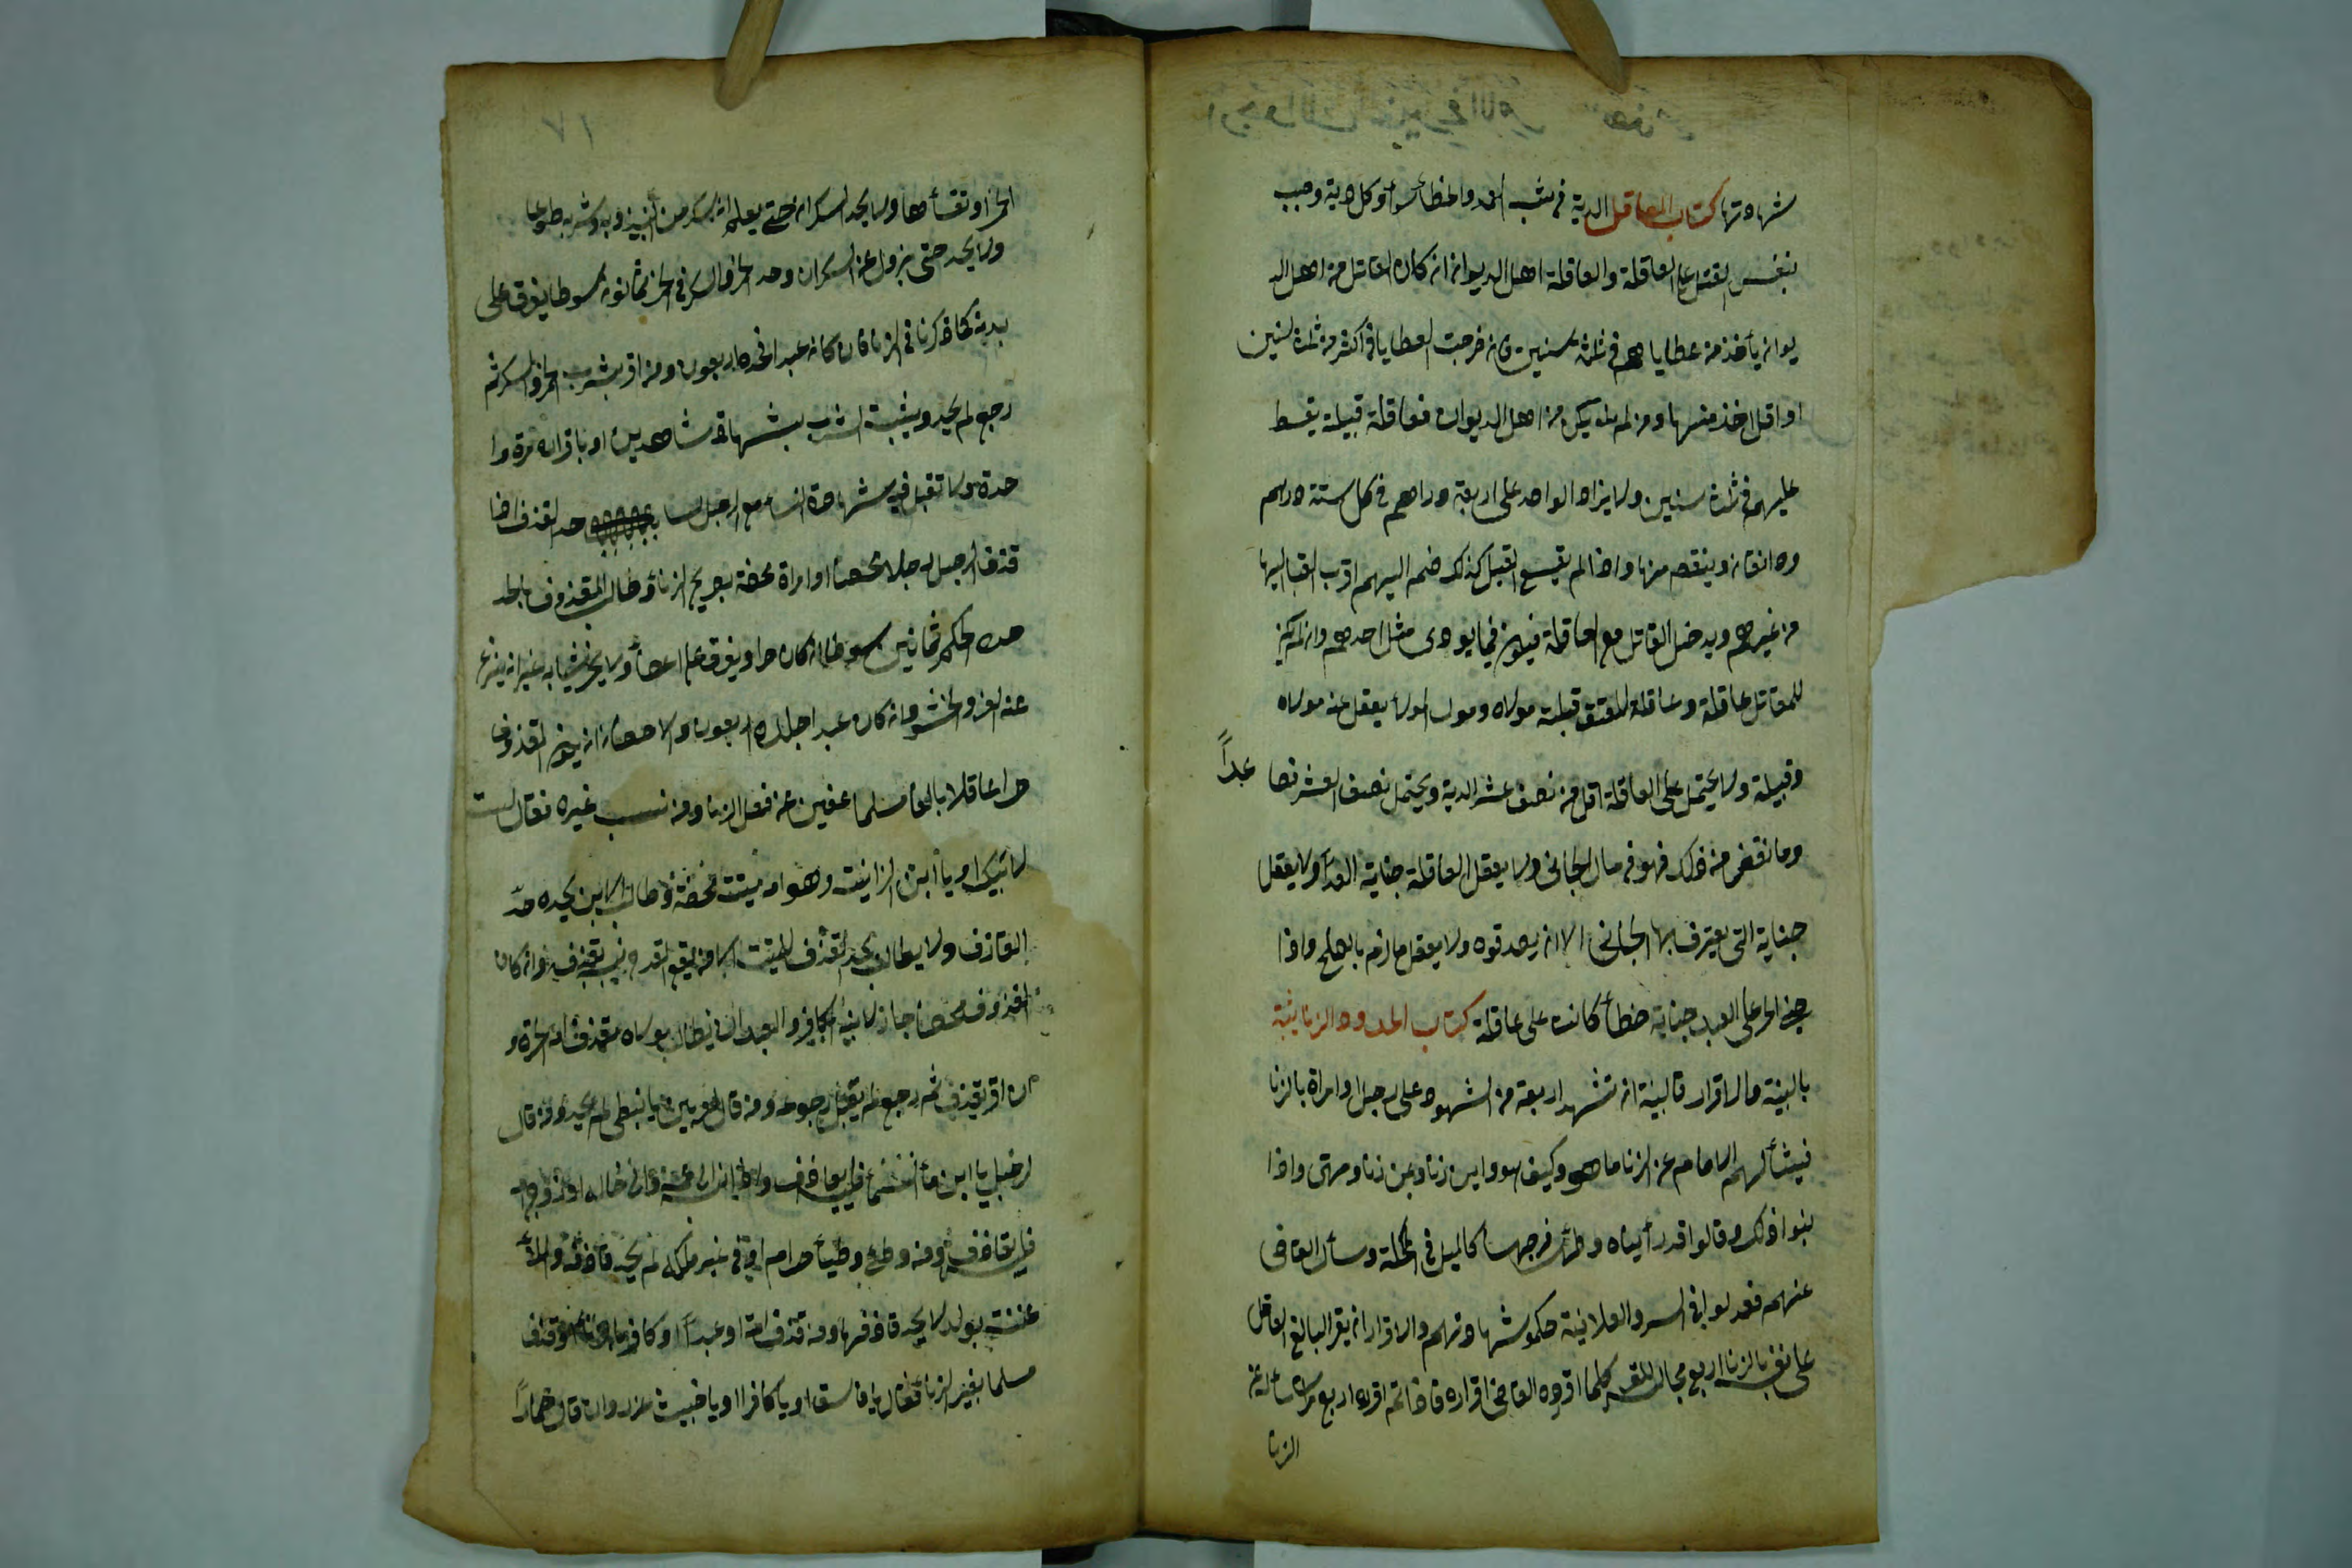 شهادتها كتاب المعاقل الدية في شبه العمد والخطأ وكل دية وجبت
بنفس القتل على العاقلة والعاقلة اهل الديوان ان كان القاتل من اهل الد
يوان يأخذ من عطاياهم في ثلث سنين فان خرجت العطايا في اكثر من ثلث سنين
او اقل اخذ منها ومن لم يكن من اهل الديوان فعاقلة قبيلة يقسط
عليهم في ثلث سنين ولا يزاد الواحد على اربعة دراهم في كل سنة درهم
ودانقان وينقص منها واذا لم يتسع القبيل كذلك ضم اليهم اقرب القبا اليها
من غيرهم ويدخل القاتل مع العاقلة فيكون فيما يودى مثل احدهم وان لم يكن
للقاتل عاقلة وعاقلة المعتق قبيلة مولاه ومولى المولا يعقل عنه مولاه
وقبيلة ولا يحتمل على العاقلة اقل من نصف عشر الدية ويحتمل نصف العشر فصا عداً
وما نقص من ذلك فهو في مال الجانى ولا يعقل العاقلة جناية العبد ولا يعقل
جناية التى يعترف بها الجانى الا ان يصدقوه ولا يعقل ما لزم بالصلح واذا
جنى الحر على العبد جناية خطأ كانت على عاقلة كتاب الحدود الزنا يثبة
بالبينة والاقرار فالبينة ان تشهد اربعة من الشهود على رجل او امراة بالزنا
فيسألهم الامام عن الزنا ما هو وكيف هو واين زنا وبمن زنا ومتى واذا
بينوا ذلك وقالوا قد رأيناه وطئ فرجها كالميل في المكحلة وسأل القاضى
عنهم فعدلوا في السر والعلانية حكم بشهادتهم والاقرار ان يقر البالغ العاقل
على نفسه بالزنا اربع مجالس المقر كلما اقر رده القاضى اقراره فاذا تم اقراره اربع مرات سأله عن
الزنا
١٧
الخمر او تقيأها ولا يحد السكران حتى يعلم انه سكر من النبيذ وبه وشربه طوعا
ولا يحد حتى يزول عنه السكران وحد الخمر والسكر في الحر ثمانون سوطا يفرق على
بدنه كما ذكرنا في الزنا فان كان عبدا فحده اربعون ومن اقر بشرب الخمر والسكر ثم
رجع لم يحد ويثبت الشرب بشهادة شاهدين او باقراره مرة وا
حدة ولا تقبل فيه شهادة النسا مع الرجل حد القذف اذا
قذف الرجل رجلا محصنا او امراة محصنة بصريح الزنا وطالب المقذوف بالحد
حده الحاكم ثمانين سوطا ان كان حرا ويفرق على اعضأ ولا يجرد ثيابه غير انه ينزع
عنه الفرو والحشو وان كان عبدا جلده اربعون والاحصان ان يكون المقذوف
حرا عاقلا بالغا مسلما عفيف عن فعل الزنا ومن نسب غيره فقال لست
لابيك او يا ابن الزانية وهو امه ميتة محصنة وطالب الابن بحده حد
القاذف ولا يطالب بحد القذف للميت الا من يقع القدح في نسبه بقذفه وان كان
المقذوف محصنا جاز لابنه الكافر والعبد ان يطالب مولاه بقذف امه الحرة و
ان اقر بقذف ثم رجع لم يقبل رجوعه ومن قال لعربى يا نبطى لم يحد ومن قال
لرجل يا ابن مأ السما فليس بقاذف واذا نسبه الى عمه وان خاله او زوج امه
فليس بقاذف ومن وطئ وطيأ حرام في غير ملكه لم يحد قاذفه والملا
عنة بولد لا يحد قاذفها ومن قذف امة او عبداً او كافر بالزنا او قذف
مسلما بغير الزنا فقال يا فاسق او يا كافرا او يا خبيث عزر وان قال حماراً